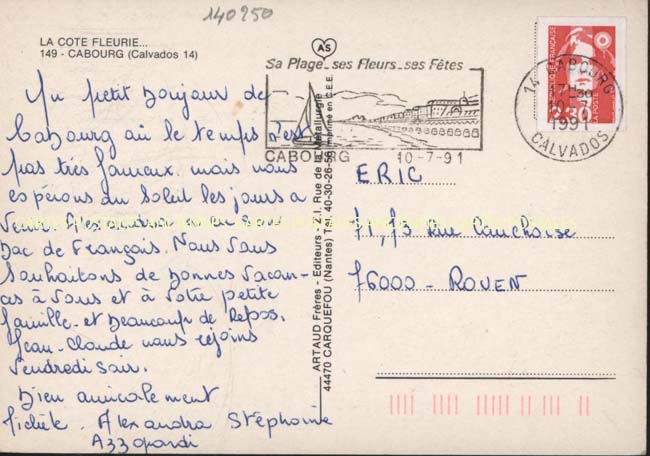 140250
LA COTE FLEURIE...
149 - CABOURG (Calvados 14)
Un petit Bonjour de
Cabourg où le temps n'est
pas très fameux. mais nous
espérons du Soleil les jours a
Venir. Alexandra a eu son
Bac de Français. Nous Vous
Souhaitons de Bonnes Vacan-
ces à Vous et à Votre petite
famille - et Beaucoup de Repos.
Jean-Claude nous rejoins
Vendredi soir.
Bien amicalement
Michèle. Alexandra Stéphanie
Azzopardi
ARTAUD Frères - Editeurs - Z.I. Rue de la Métallurgie
44470 CARQUEFOU (Nantes) Tél. 40-30-26-56 Imprimé en C.E.E.
AS
Sa Plage_ses Fleurs_ses Fêtes
CABOURG 10-7-91
14 CABOURG
17H30
10-7
1991
CALVADOS
REPUBLIQUE FRANÇAISE
2,30
LA POSTE
ERIC
71, 73 rue Cauchoise
76000 - ROUEN